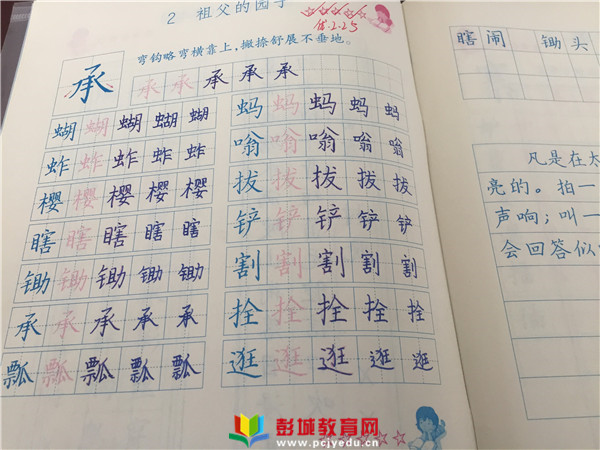 2 祖父的园子
优2.23
弯钩略弯横靠上,撇捺舒展不垂地。
承 承 承 承 承 承
蝴 蝴 蝴 蝴 蝴
蚱 蚱 蚱 蚱 蚱
樱 樱 樱 樱 樱
瞎 瞎 瞎 瞎 瞎
锄 锄 锄 锄 锄
承 承 承 承 承
瓢 瓢 瓢 瓢 瓢
蚂 蚂 蚂 蚂 蚂
嗡 嗡 嗡 嗡 嗡
拔 拔 拔 拔 拔
铲 铲 铲 铲 铲
割 割 割 割 割
拴 拴 拴 拴 拴
逛 逛 逛 逛 逛
瞎闹 锄头
凡是在太
亮的。拍一
声响;叫一
会回答似
彭城教育网
www.pcjyedu.cn